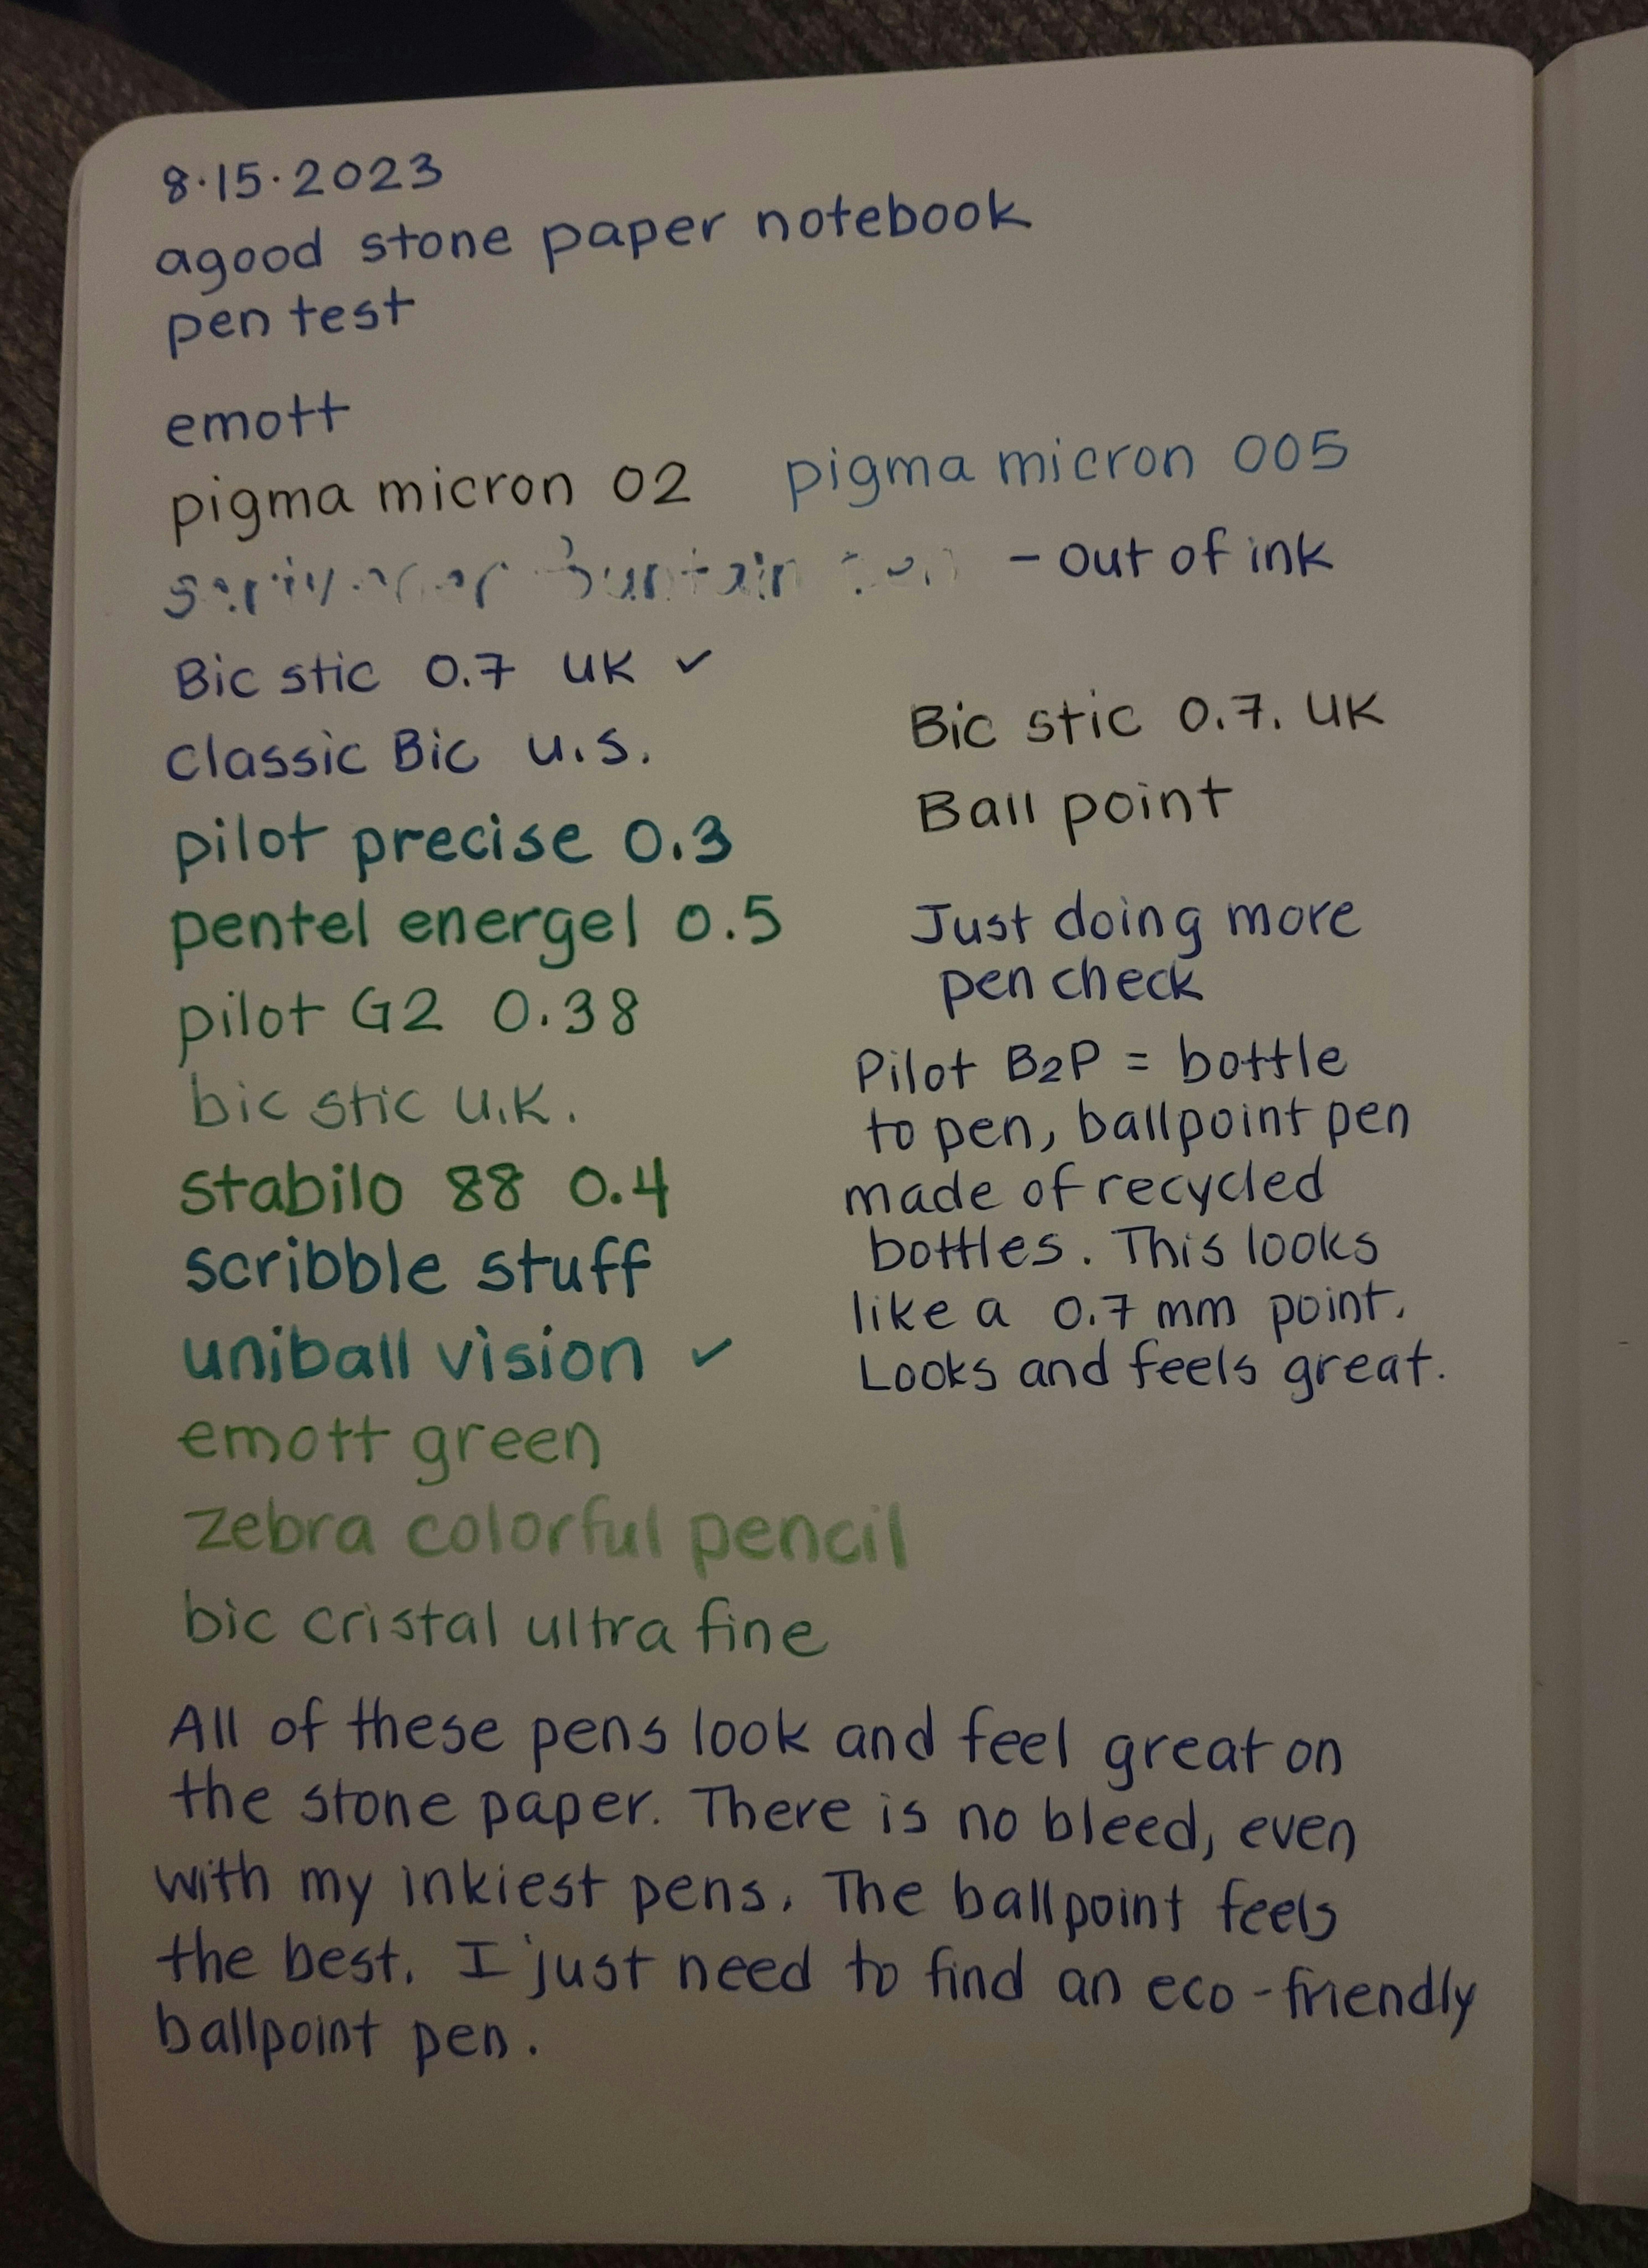 8.15.2023
agood stone paper notebook
pen test
emott
pigma micron 02
pigma micron 005
- out of ink
Bic stic 0.7 UK ✓
Classic Bic U.S.
pilot precise 0.3
pentel energel 0.5
pilot G2 0.38
bic stic U.K.
stabilo 88 0.4
scribble stuff
uniball vision ✓
emott green
zebra colorful pencil
bic cristal ultra fine
Bic stic 0.7. UK
Ball point
Just doing more
pen check
Pilot B2P = bottle
to pen, ballpoint pen
made of recycled
bottles. This looks
like a 0.7 mm point.
Looks and feels great.
All of these pens look and feel great on
the stone paper. There is no bleed, even
with my inkiest pens. The ballpoint feels
the best. I just need to find an eco-friendly
ballpoint pen.